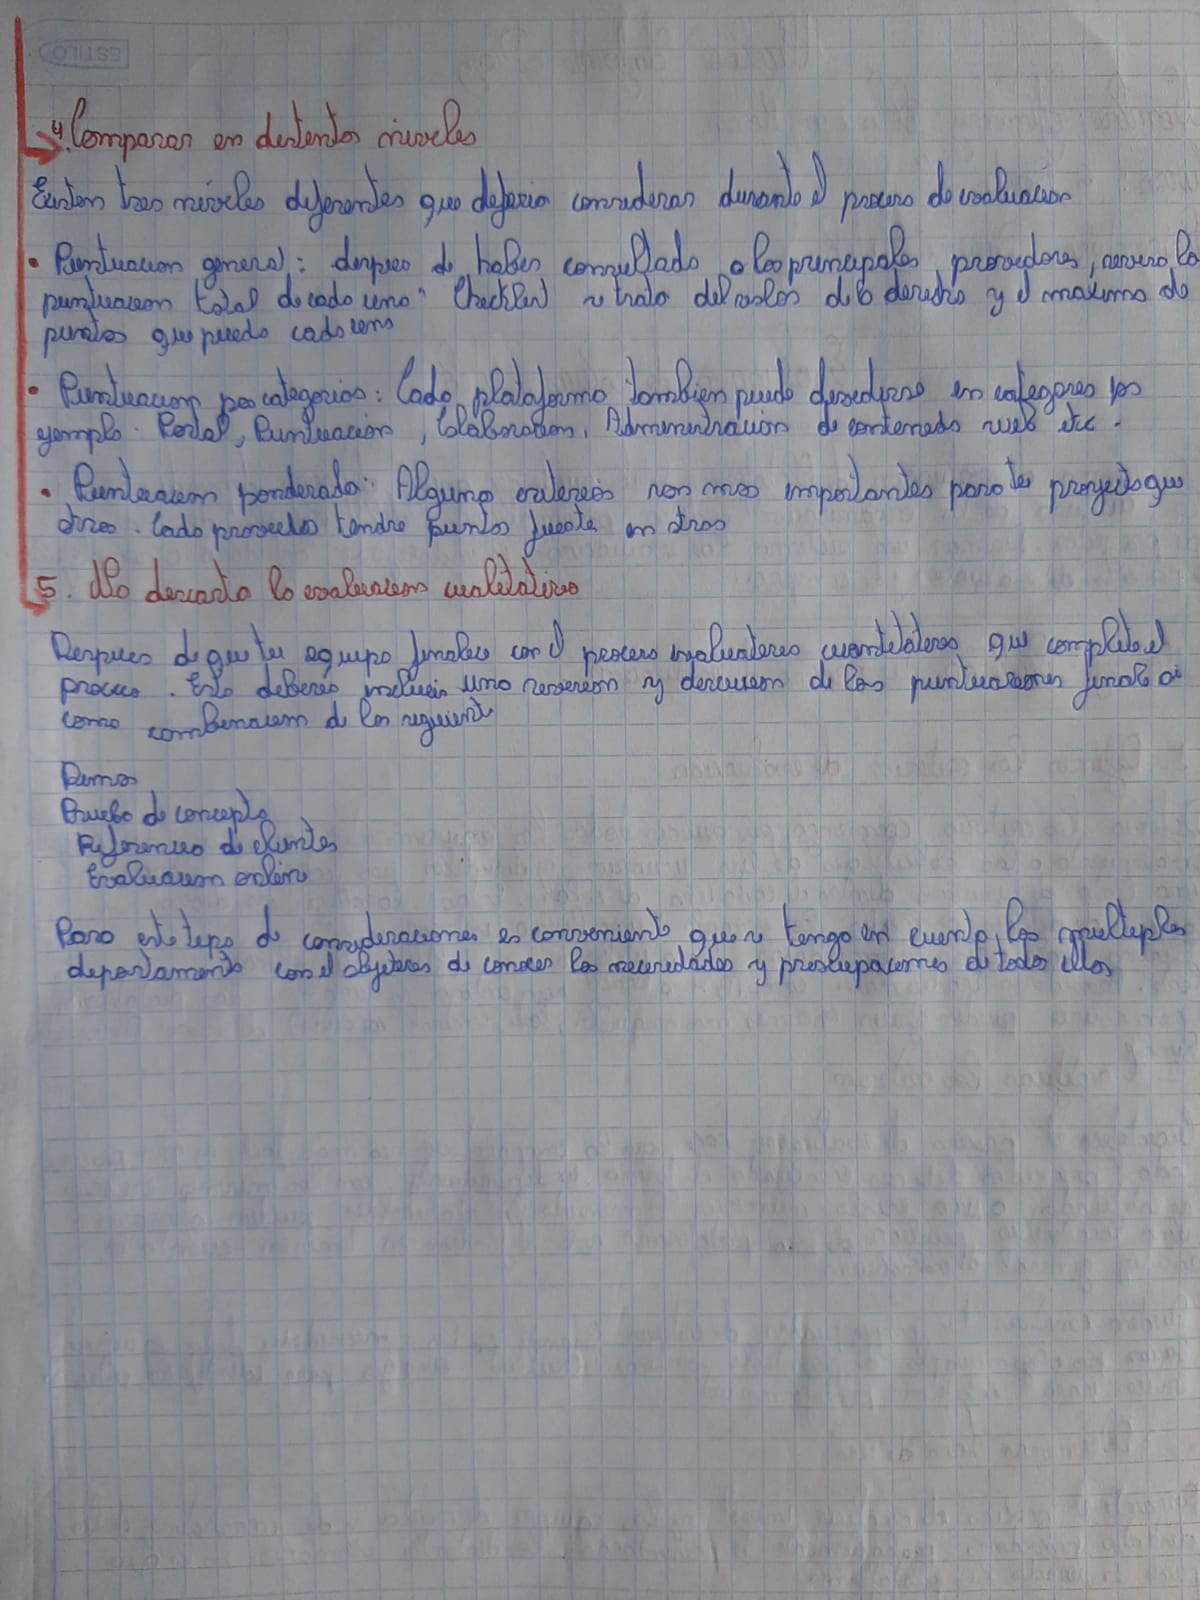 4. Comparar en distintos niveles
Existen tres niveles diferentes que deberia considerar durante el proceso de evaluación
• Puntuacion general: despues de haber consultado a los principales proveedores, revisa la
puntuacion total de cada una. Checklist se trata del valor de la derecha y el maximo de
puntos que puede cada uno
• Puntuacion por categorias: Cada plataforma tambien puede dividirse en categorias por
ejemplo: Portal, Puntuación, Colaboracion, Administración de contenido web etc.
• Puntuacion ponderada: Alguno criterios son mas importantes para tu proyecto que
otros. Cada proveedor tendra puntos fuerte en otros
5. No descarta la evaluacion cualitativa
Despues de que tu equipo finalice con el proceso evaluaciones cuantitativas que complete el
proceso. Esto deberás incluir una reversion y discusion de las puntuaciones finale asi
como combinacion de los siguiente
Demos
Prueba de concepto
Referencias de clientes
Evaluacion online
Para este tipo de consideraciones es conveniente que se tenga en cuenta los multiples
departamento con el objetivos de conocer las necesidades y preocupaciones de todos ellos
ESTILO